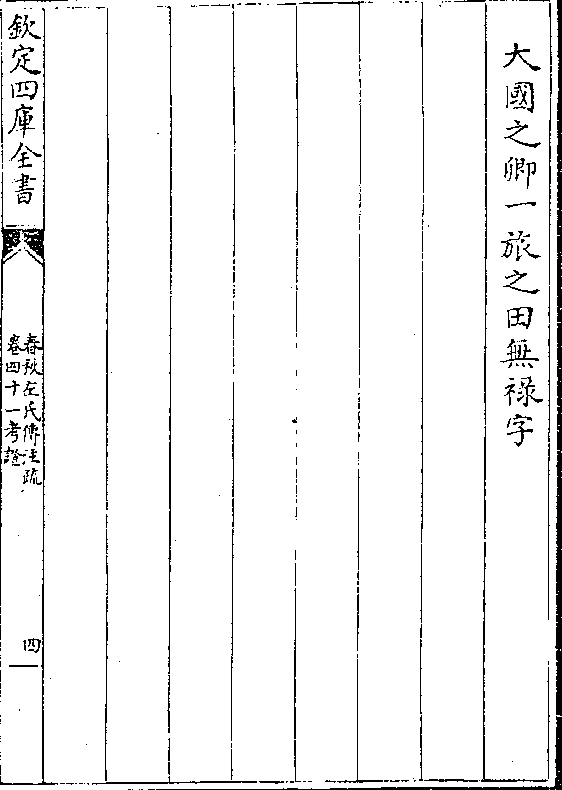 大國之卿一旅之田無禄字
欽定四庫全書
春秋左氏傳注疏
卷四十一考證
四